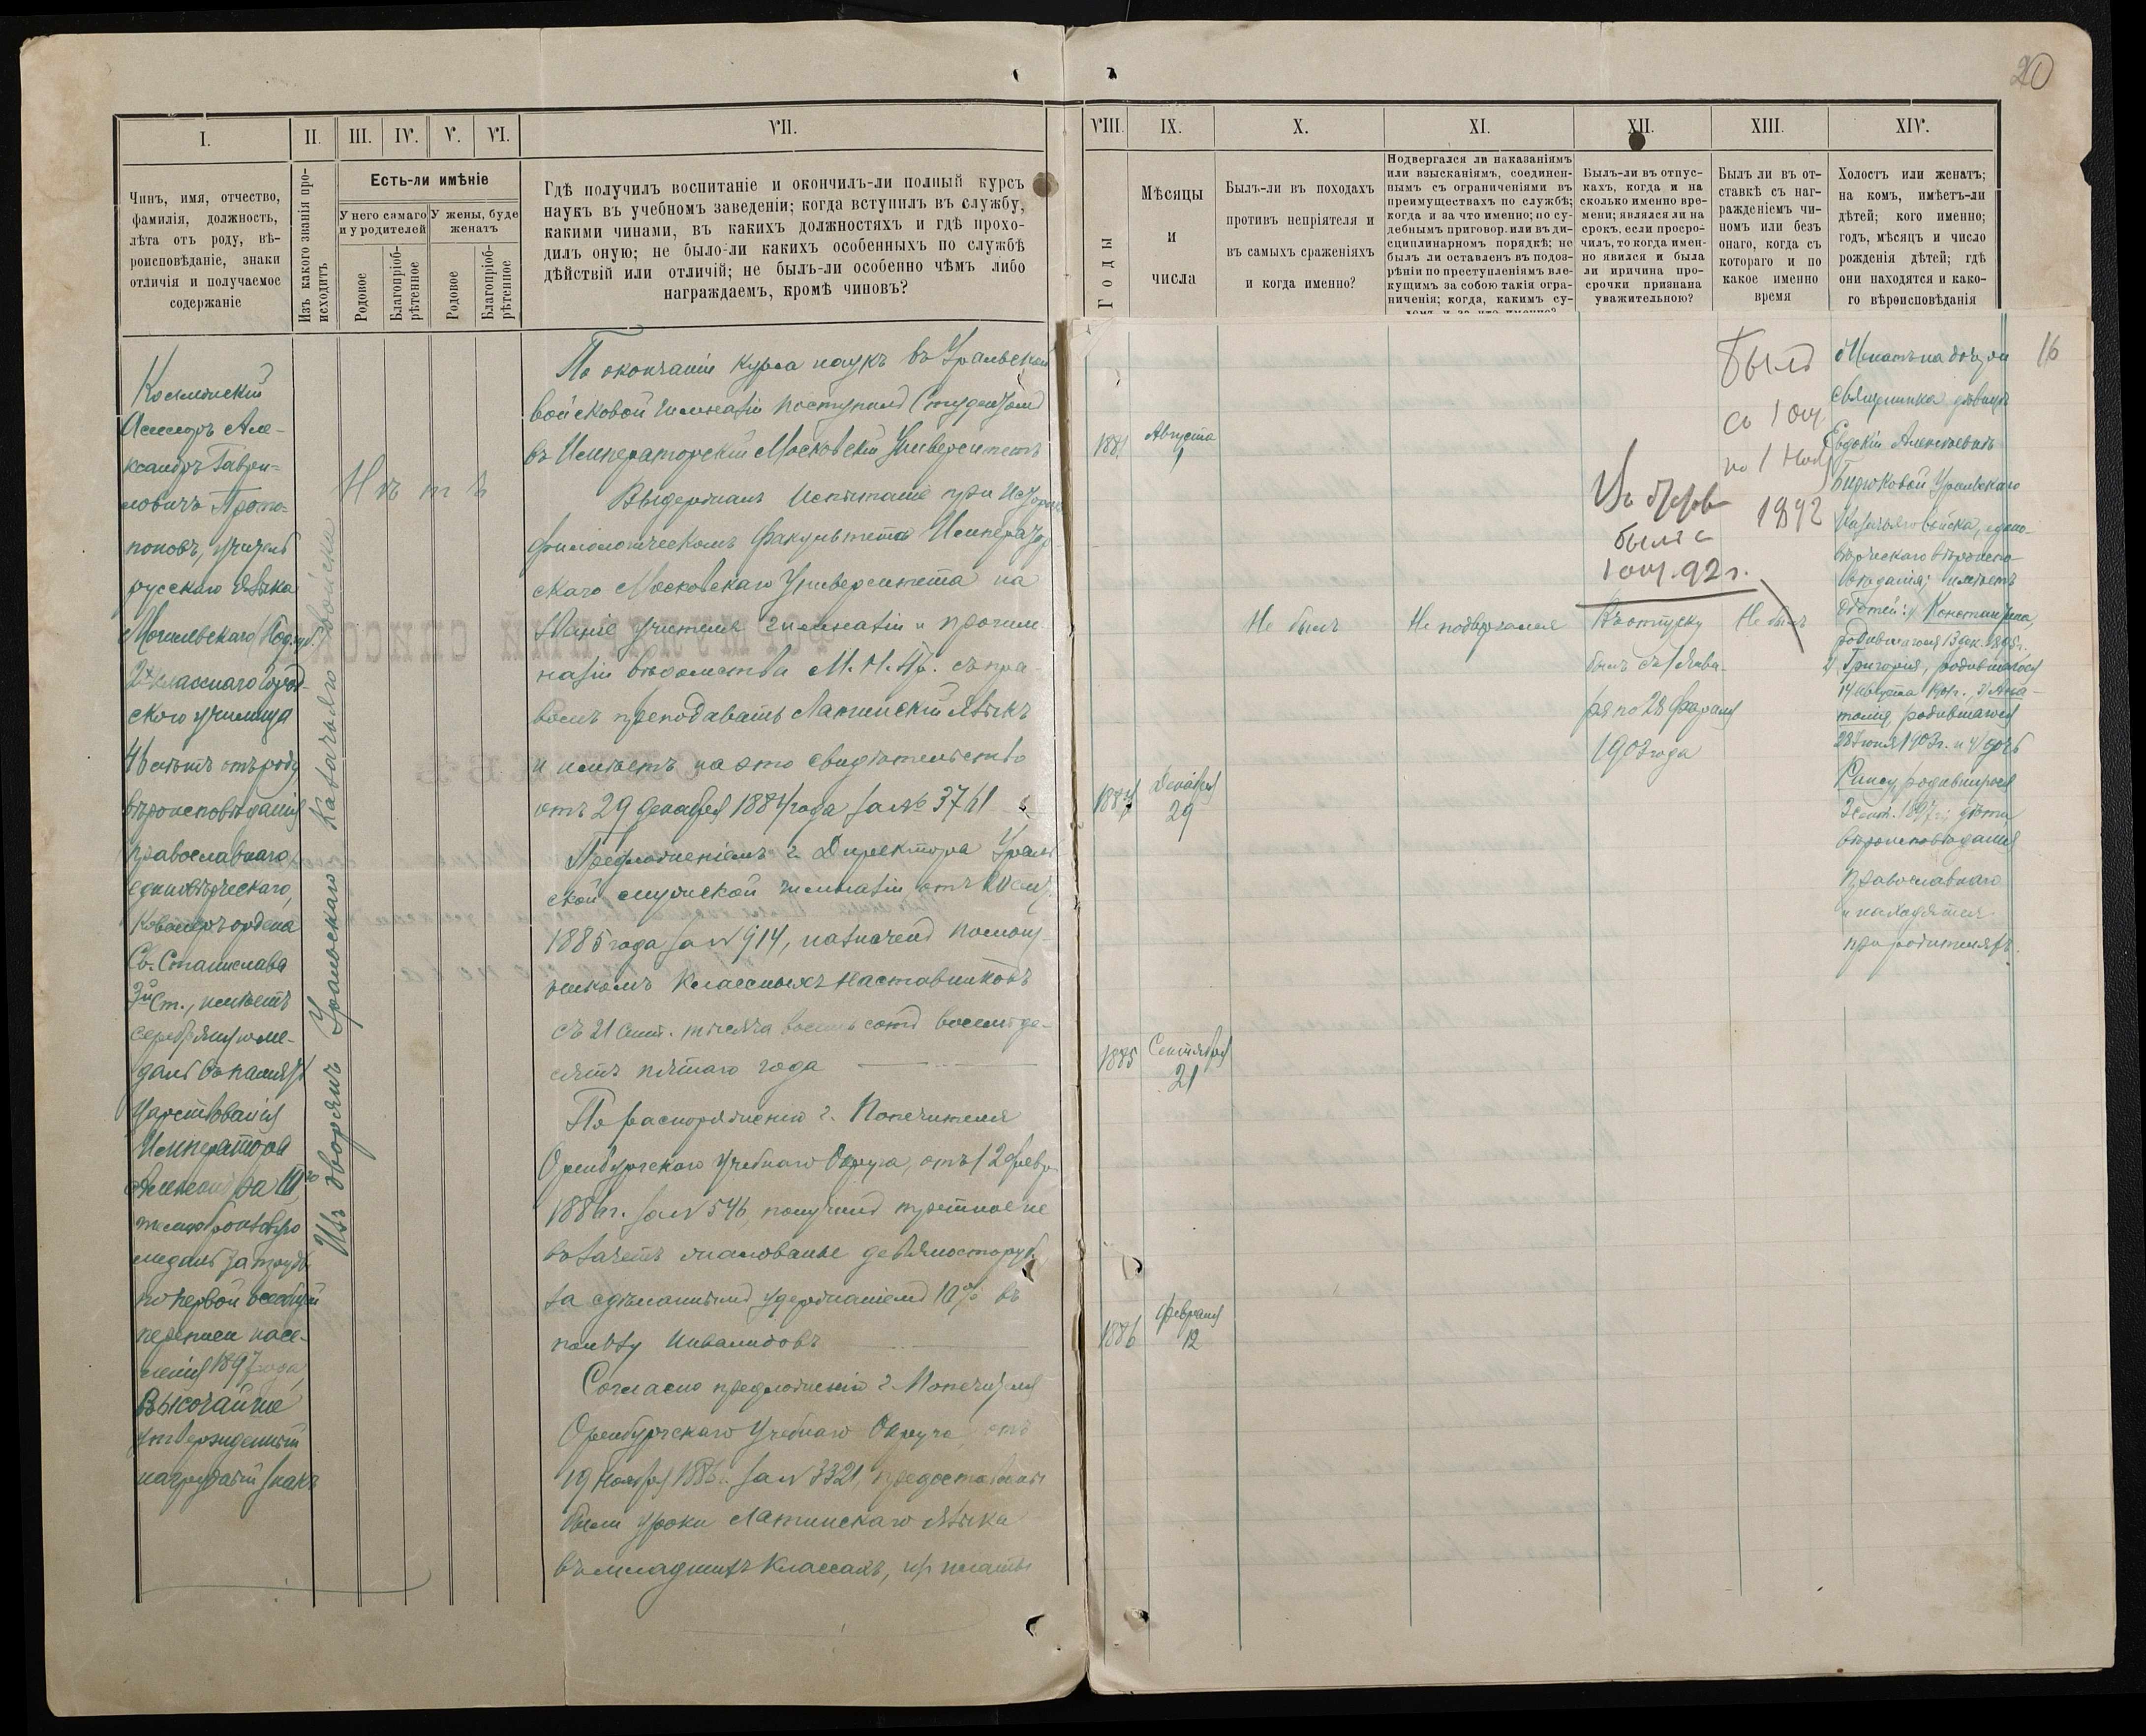 20
I.
II.
III.
IV.
V.
VI.
VII.
VIII.
IX.
X.
XI.
XII.
XIII.
XIV.
Чинъ, имя, отчество,
фамилія, должность,
лѣта отъ роду, вѣ-
роисповѣданіе, знаки
отличія и получаемое
содержаніе
Изъ какого званія про-
исходитъ
Есть-ли имѣніе
У него самаго
и у родителей
У жены, буде
женатъ
Родовое
Благопріоб-
рѣтенное
Родовое
Благопріоб-
рѣтенное
Гдѣ получилъ воспитаніе и окончилъ-ли полный курсъ
наукъ въ учебномъ заведеніи; когда вступилъ въ службу,
какими чинами, въ какихъ должностяхъ и гдѣ прохо-
дилъ оную; не было-ли какихъ особенныхъ по службѣ
дѣйствій или отличій; не былъ-ли особенно чѣмъ либо
награждаемъ, кромѣ чиновъ?
Годы
Мѣсяцы
и
числа
Былъ-ли въ походахъ
противъ непріятеля и
въ самыхъ сраженіяхъ
и когда именно?
Подвергался ли наказаніямъ
или взысканіямъ, соединен-
нымъ съ ограниченіями въ
преимуществахъ по службѣ;
когда и за что именно; по су-
дебнымъ приговор. или въ ди-
сциплинарномъ порядкѣ; не
былъ ли оставленъ въ подоз-
рѣніи по преступленіямъ вле-
кущимъ за собою такія огра-
ниченія; когда, какимъ су-
домъ и за что именно?
Былъ-ли въ отпус-
кахъ, когда и на
сколько именно вре-
мени; являлся ли на
срокъ, если просро-
чилъ, то когда имен-
но явился и была
ли иричина про-
срочки признана
уважительною?
Былъ ли въ от-
ставкѣ съ наг-
ражденіемъ чи-
номъ или безъ
онаго, когда съ
котораго и по
какое именно
время
Холостъ или женатъ;
на комъ, имѣетъ-ли
дѣтей; кого именно;
годъ, мѣсяцъ и число
рожденія дѣтей; гдѣ
они находятся и како-
го вѣроисповѣданія
Коллежскій
Ассесоръ Але-
ксандръ Гаври-
ловичъ Прото-
поповъ, учитель
русскаго языка
Могилевскаго Под. губ.
2хъ класснаго город-
ского училища
46 лѣтъ отъ роду
вѣроисповѣданія
православнаго,
единовѣрческаго,
Кавалеръ ордена
Св. Станислава
3й Ст., имѣетъ
серебряную ме-
даль въ память
Царствованія
Императора
Александра III го
темнобронзовую
медаль за труды
по первой всеобщей
переписи насе-
ленія 1897 года,
Высочайше
утвержденный
нагрудный знакъ
Изъ дворянъ Уральскаго Казачьяго войска
Нѣтъ
По окончаніи курса наукъ въ Уральской
войсковой гимназіи поступилъ Студентомъ
въ Императорскій Московскій Университетъ
Выдержалъ испытаніе при Историко
филологическомъ факультетѣ Император
скаго Московскаго Университета на
званіе учителя гимназіи и прогим-
назіи вѣдомства М. Н. Пр. съ пра-
вомъ преподавать Латинскій языкъ
и имѣетъ на это свидѣтельство
отъ 29 декабря 1884 года за № 3761
Предложеніемъ г. Директора Ураль
ской мужской гимназіи отъ 20 сент.
1885 года за № 914, назначенъ помощ-
никомъ Классныхъ Наставниковъ
съ 21 Сент. тысяча восемь сотъ восемьде-
сятъ пятаго года
По распоряженію г. Попечителя
Оренбургскаго Учебнаго Округа, отъ 12 февр.
1886 г. за № 546, получилъ третное не
въ зачетъ жалованье девяносто руб.
за сдѣланнымъ удержаніемъ 10% въ
пользу инвалидовъ
Согласно предложенію г. Попечителя
Оренбургскаго Учебнаго Округа, отъ
19 ноября 1886 г. за № 3321, предоставлены
были уроки Латинскаго языка
въ младшихъ Классахъ, изъ платы
1881
Августа
1
1884
Декабря
29
1885
Сентября
21
1886
Февраля
12
Не былъ
Не подвергался
былъ с
1 окт. 92 г.
Въ отпуску
былъ съ 1 Янва-
ря по 28 февраля
1903 года
Былъ
съ 1 окт
по 1 Ноя
1892
Не былъ
16
Женатъ на дочери
священника дѣвицѣ
Евдокіи Алексѣевнѣ
Бирюковой Уральскаго
Казачьяго войска, едино-
вѣрческаго вѣроиспо-
вѣданія; имѣетъ
дѣтей: 1) Константина,
родившагося 13 дек. 1895 г.
2) Григорія, родившагося
14 августа 1901 г., 3) Ана-
толія родившагося
28 Іюня 1903 г. и 4) дочь
Раису, родившуюся
3 сент. 1897 г.; дѣти
вѣроисповѣданія
православнаго
и находятся
при родителяхъ.